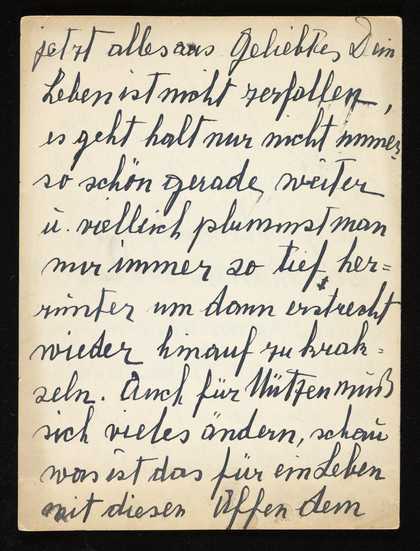 jetzt alles aus Geliebtes, Dein
Leben ist nicht zerfallen,
es geht halt nur nicht immer
so schön gerade weiter
u. vielleich plummst man
nur immer so tief her=
runter um dann erstrecht
wieder hinauf zu krak=
seln. Auch für Nützen muß
sich vieles ändern, schau
was ist das für ein Leben
mit diesen Affen dem